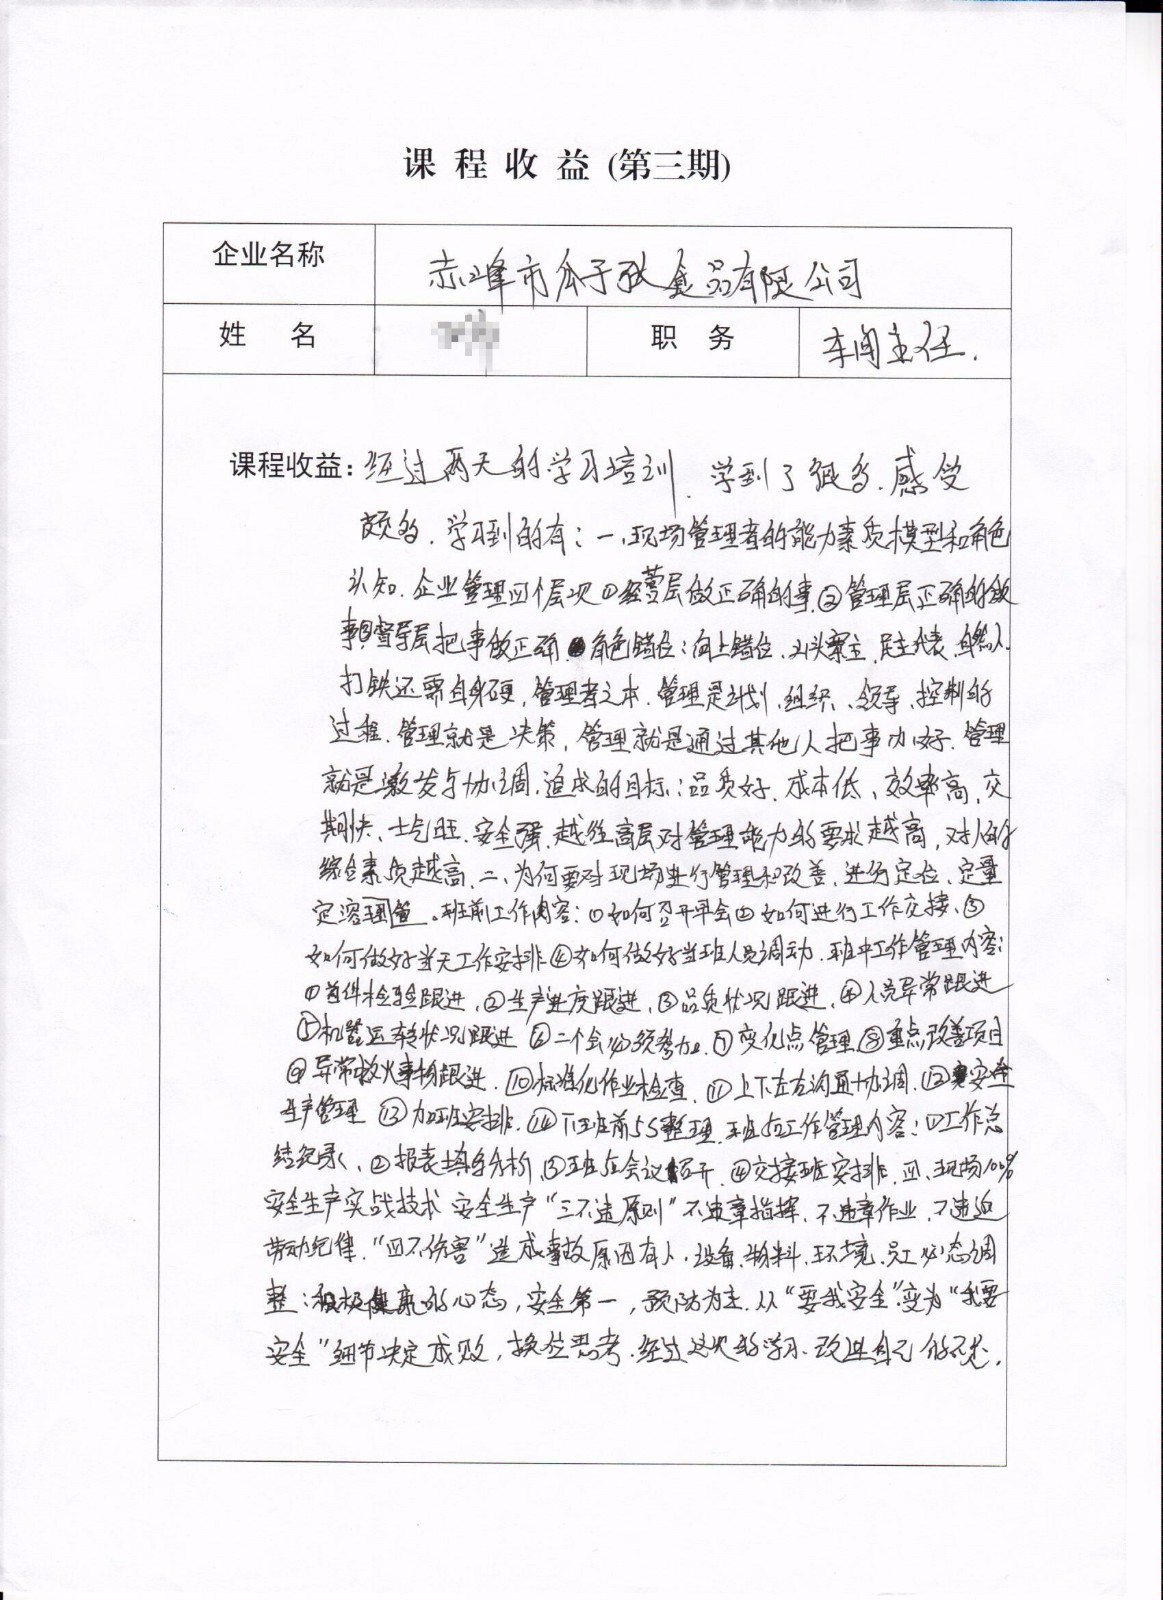 课 程 收 益 (第三期)
企业名称 赤峰市瓜子张食品有限公司
姓 名 职 务 车间主任.
课程收益：经过两天的学习培训. 学到了很多. 感受
颇多. 学习到的有：一.现场管理者的能力素质模型和角色
认知. 企业管理四个层次①经营层做正确的事.②管理层正确的做
事③督导层把事做正确. 角色错位：向上错位. 民主代表. 自然人.
打铁还需自身硬, 管理者之本. 管理是计划、组织、领导、控制的
过程. 管理就是决策, 管理就是通过其他人把事办好. 管理
就是激发与协调. 追求的目标：品质好. 成本低、效率高, 交
期快、士气旺. 安全强. 越往高层对管理能力的要求越高, 对人的
综合素质越高. 二、为何要对现场进行管理和改善、进行定位、定量
定容 。班前工作内容：①如何召开早会②如何进行工作交接、③
如何做好当天工作安排④如何做好当班人员调动. 班中工作管理内容：
①首件检验跟进、②生产进度跟进、③品质状况跟进、④人员异常跟进
⑤机器运转状况跟进 ⑥二个会必须参加. ⑦变化点管理⑧重点改善项目
⑨异常救火事物跟进. ⑩标准化作业检查. ⑪上下左右沟通协调. ⑫安全
生产管理 ⑬加班安排. ⑭下班前5S整理. 班后工作管理内容：①工作总
结纪录、②报表填写分析③班后会议召开. ④交接班安排. 四、现场100%
安全生产实战技术 安全生产“三不违原则”不违章指挥, 不违章作业, 不违
劳动纪律. “四不伤害”造成事故原因有人. 设备. 物料. 环境. 员工心态调
整：积极健康的心态, 安全第一, 预防为主. 从“要我安全”变为“我要
安全”细节决定成败, 换位思考. 经过这次的学习. 改进自己的不足.